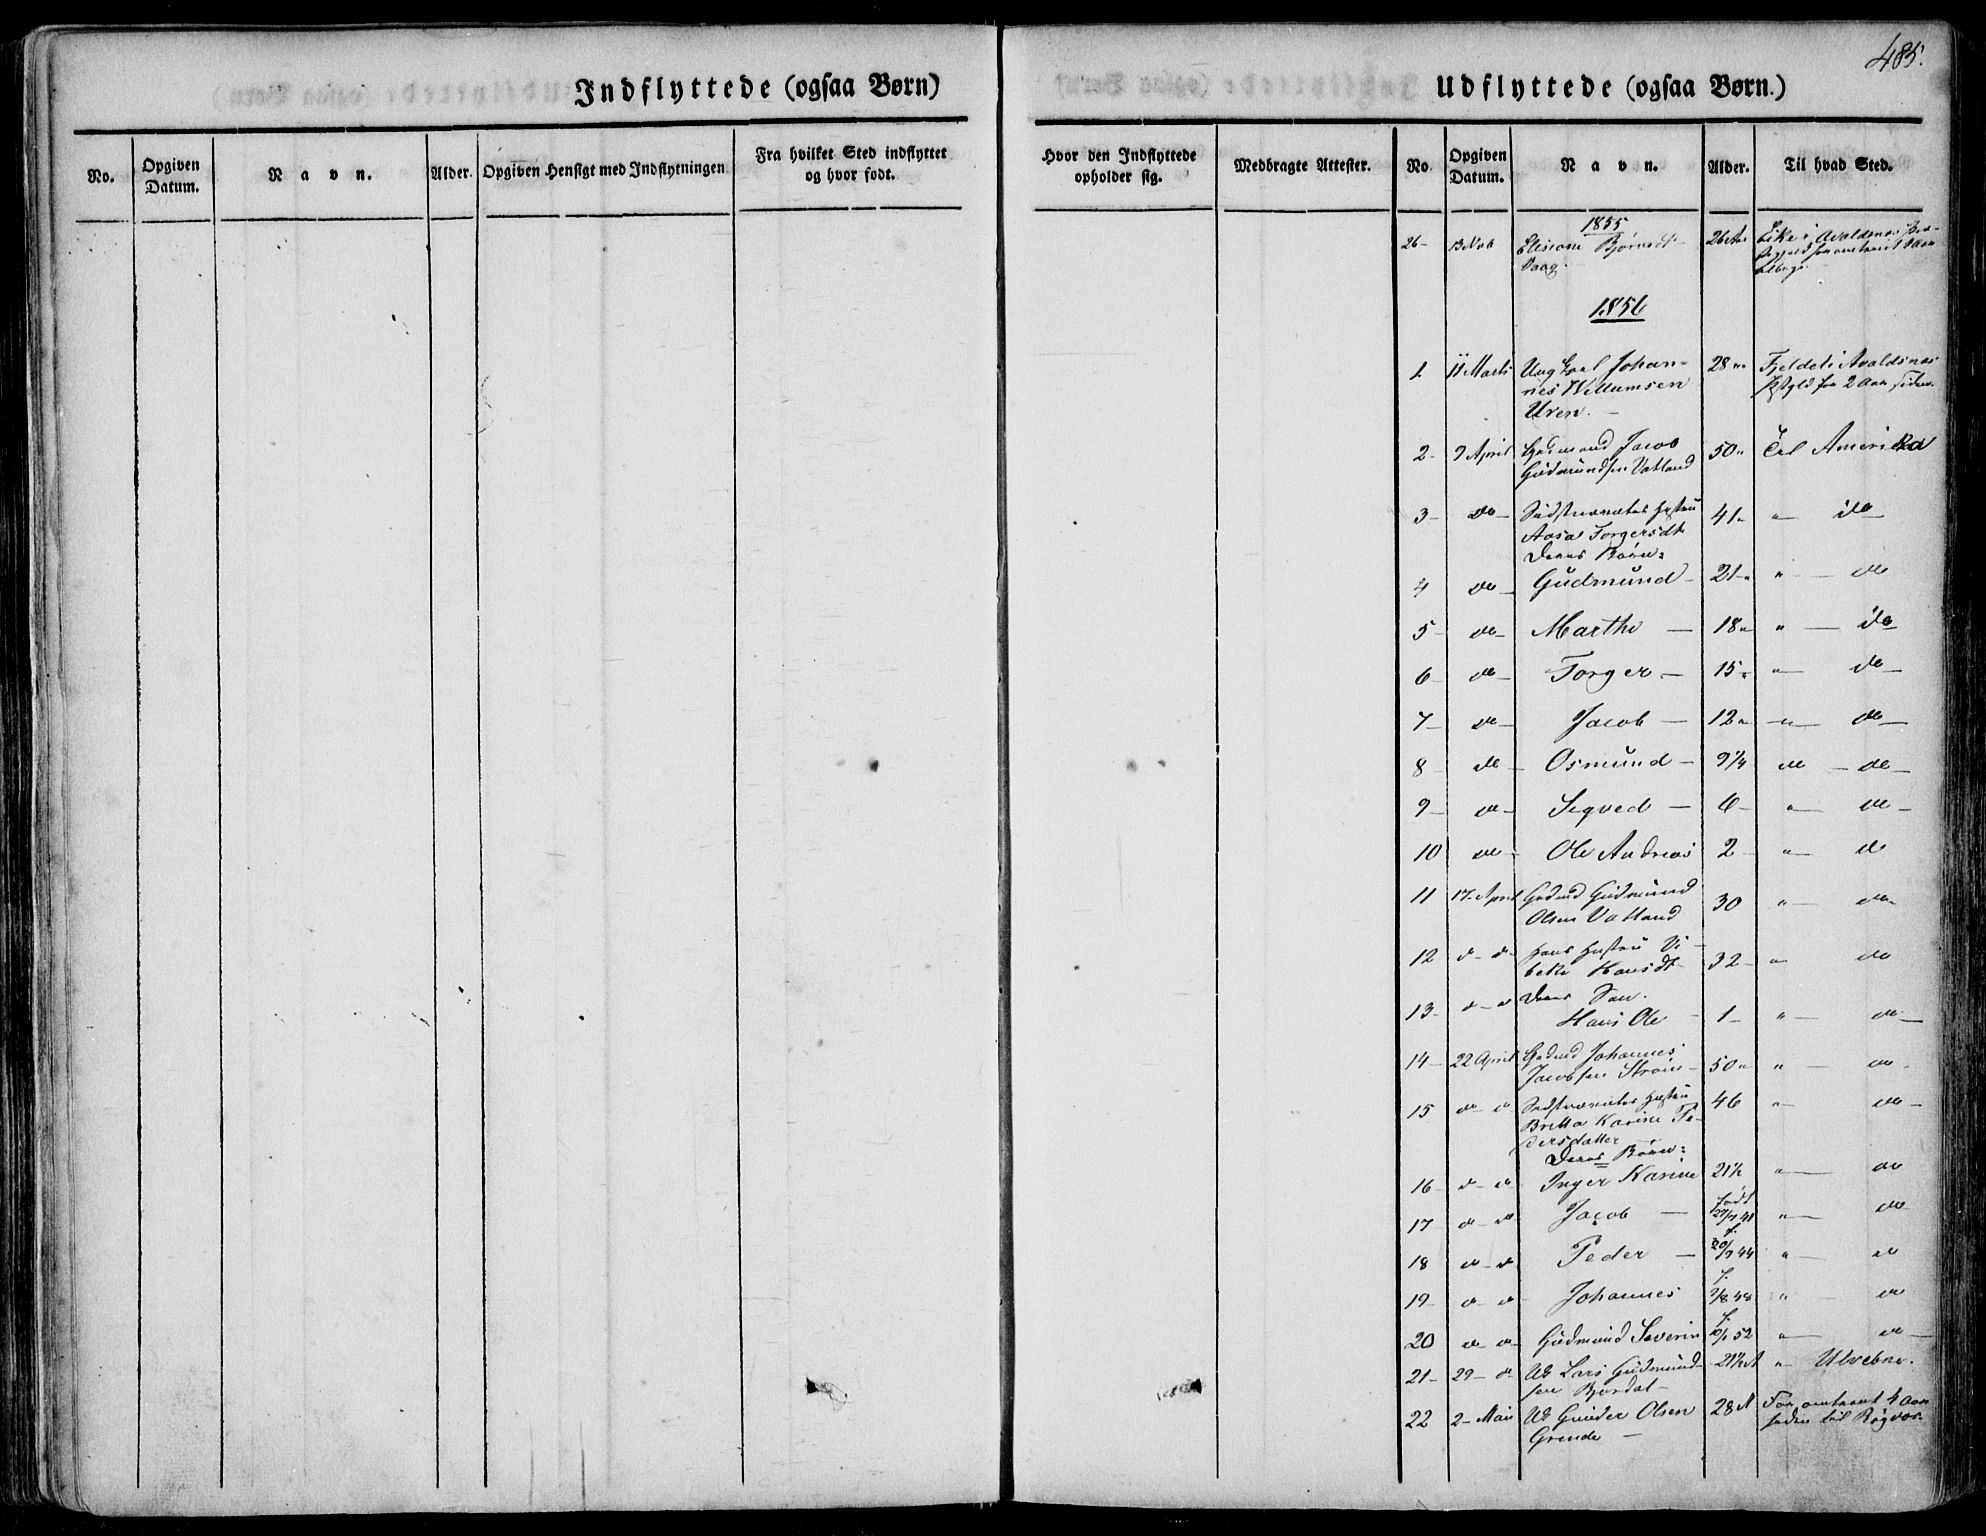 485.
Indflyttede (ogsaa Børn)
Udflyttede (ogsaa Børn.)
No.
Opgiven Datum.
Navn.
Alder.
Opgiven Hensigt med Indflytningen
Fra hvilket Sted indflyttet og hvor født.
Hvor den Indflyttede opholder sig.
Medbragte Attester.
No.
Opgiven Datum.
Navn.
Alder.
Til hvad Sted.
1855
26- 13 Nob Elisane Bjørnsdt 26 Aar Eike i Avaldsnes
Vaag.
1856
1. 11 Marts Ungkarl Johan- 28 Fjeldet i Avaldsnes
nes Willumsen for 2 Aar siden
Uren.
2- 9 April Gadmand Jacob 50 Til Amerika
Gudmundsen Vatland
3- do- Hustru 41 " do
Aasa Torgersdt
Deres Børn:
4 do- Gudmund- 21 " do
5- do- Marthe - 18 " do
6- do- Torger - 15 " do
7- do- Jacob - 12 " do
8- do- Osmund - 9 1/4 do - do-
9- do- Sigved - 6- " do-
10 do- Ole Andreas 2 " do
11 17 April Gadmd Gudmund 30 " do
Olsen Vatland
12 d- d- Hans Hustru Vi- 32- " do
beke Hansdt
13- d- d Deres Søn.
Hans Ole - 1- " do-
14- 22 April Gadmd Johannes 50 " do
Jacobsen
15 d- d Hustru 46 " do-
Britta Karine Pe-
dersdatter
Deres Børn:
16- d- d- Inger Karine 21 1/2 " do
17- d- d- Jacob - født 41 " do
18 d- d- Peder - f. 44 " do
19- d- d Johannes f. 48 " do
20 d- d- Gudmund Severin f. 52 " do
21- 29- d Uk Lars Gudmund- 21 1/2 A "
sen Bjordal-
22 2- Mai Uk Gunder Olsen 28 A For omtrent 4 Aar
Grinde - siden til